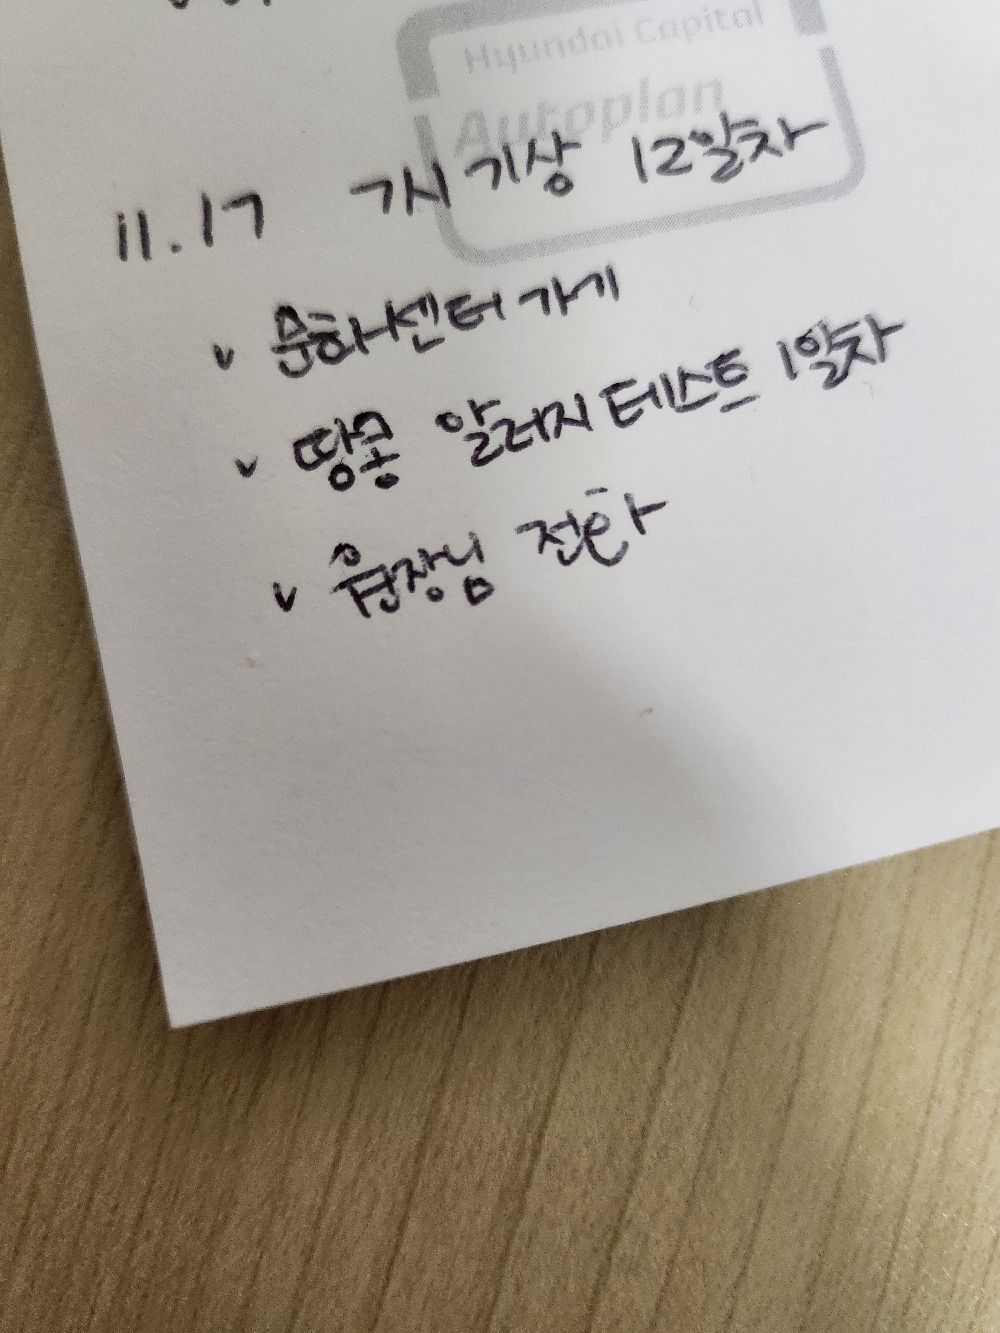 Hyundai Capital
Autoplan
11.17 7시 기상 12일차
v 문화센터 가기
v 땅콩 알러지 테스트 1일차
v 원장님 전화